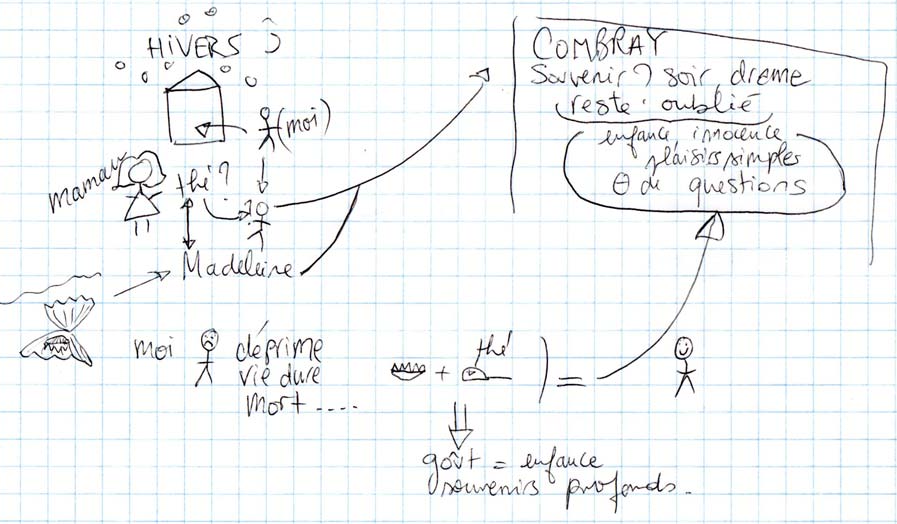 HIVERS
(moi)
maman
thé?
Madeleine
COMBRAY
Souvenir? soir, drame
reste oublié
enfance, innocence
plaisirs simples
θ de questions
moi
déprime
vie dure
mort ....
+ thé ) =
goût = enfance
souvenirs profonds.